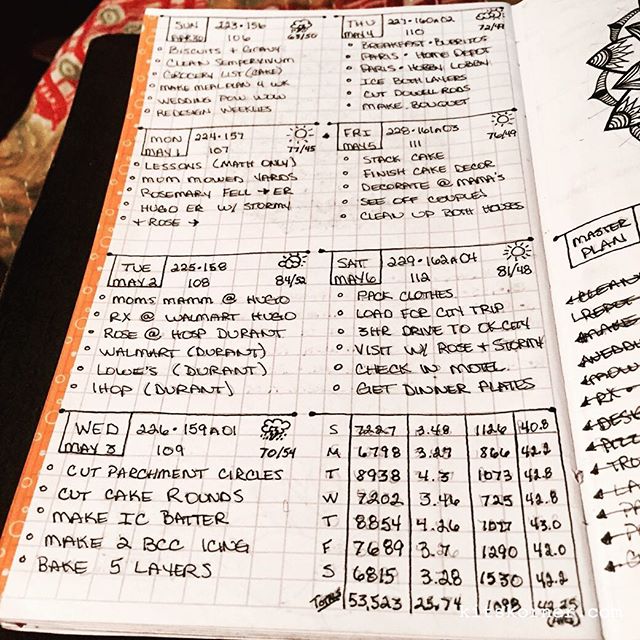 SUN 223·156
APR 30 106 63/50
BISCUITS + GRAVY
CLEAN SEMPERVIVUM
GROCERY LIST (CAKE)
MAKE MEAL PLAN 4 WK
WEDDING POW WOW
REDESIGN WEEKLIES
MON 224·157
MAY 1 107 77/45
LESSONS (MATH ONLY)
MOM MOWED YARDS
ROSEMARY FELL → ER
HUGO ER W/ STORMY
+ ROSE →
TUE 225·158
MAY 2 108 84/52
MOMS MAMM @ HUGO
RX @ WALMART HUGO
ROSE @ HOSP DURANT
WALMART (DURANT)
LOWE'S (DURANT)
IHOP (DURANT)
WED 226·159A01
MAY 3 109 70/54
CUT PARCHMENT CIRCLES
CUT CAKE ROUNDS
MAKE IC BATTER
MAKE 2 BCC ICING
BAKE 5 LAYERS
THU 227·160A02
MAY 4 110 72/49
BREAKFAST·BURRITOS
PARIS·HOME DEPOT
PARIS·HOBBY LOBBY
ICE BOTH LAYERS
CUT DOWELL RODS
MAKE BOUQUET
FRI 228·161A03
MAY 5 111 76/49
STACK CAKE
FINISH CAKE DECOR
DECORATE @ MAMA'S
SEE OFF COUPLE!
CLEAN UP BOTH HOUSES
SAT 229·162A04
MAY 6 112 81/48
PACK CLOTHES
LOAD FOR CITY TRIP
3HR DRIVE TO OK CITY
VISIT W/ ROSE + STORMY
CHECK IN MOTEL
GET DINNER PLATES
S 7227 3.48 1126 40.8
M 6798 3.27 866 42.2
T 8938 4.3 1073 42.8
W 7202 3.46 725 42.8
T 8854 4.26 43.0
F 7689 3.7 1290 42.0
S 6815 3.28 1530 42.2
TOTALS 53,523 25.74 1098
(AVG)
MASTER
PLAN
CLEAN
REPOT
MAKE
WEDD
kitskorner.com